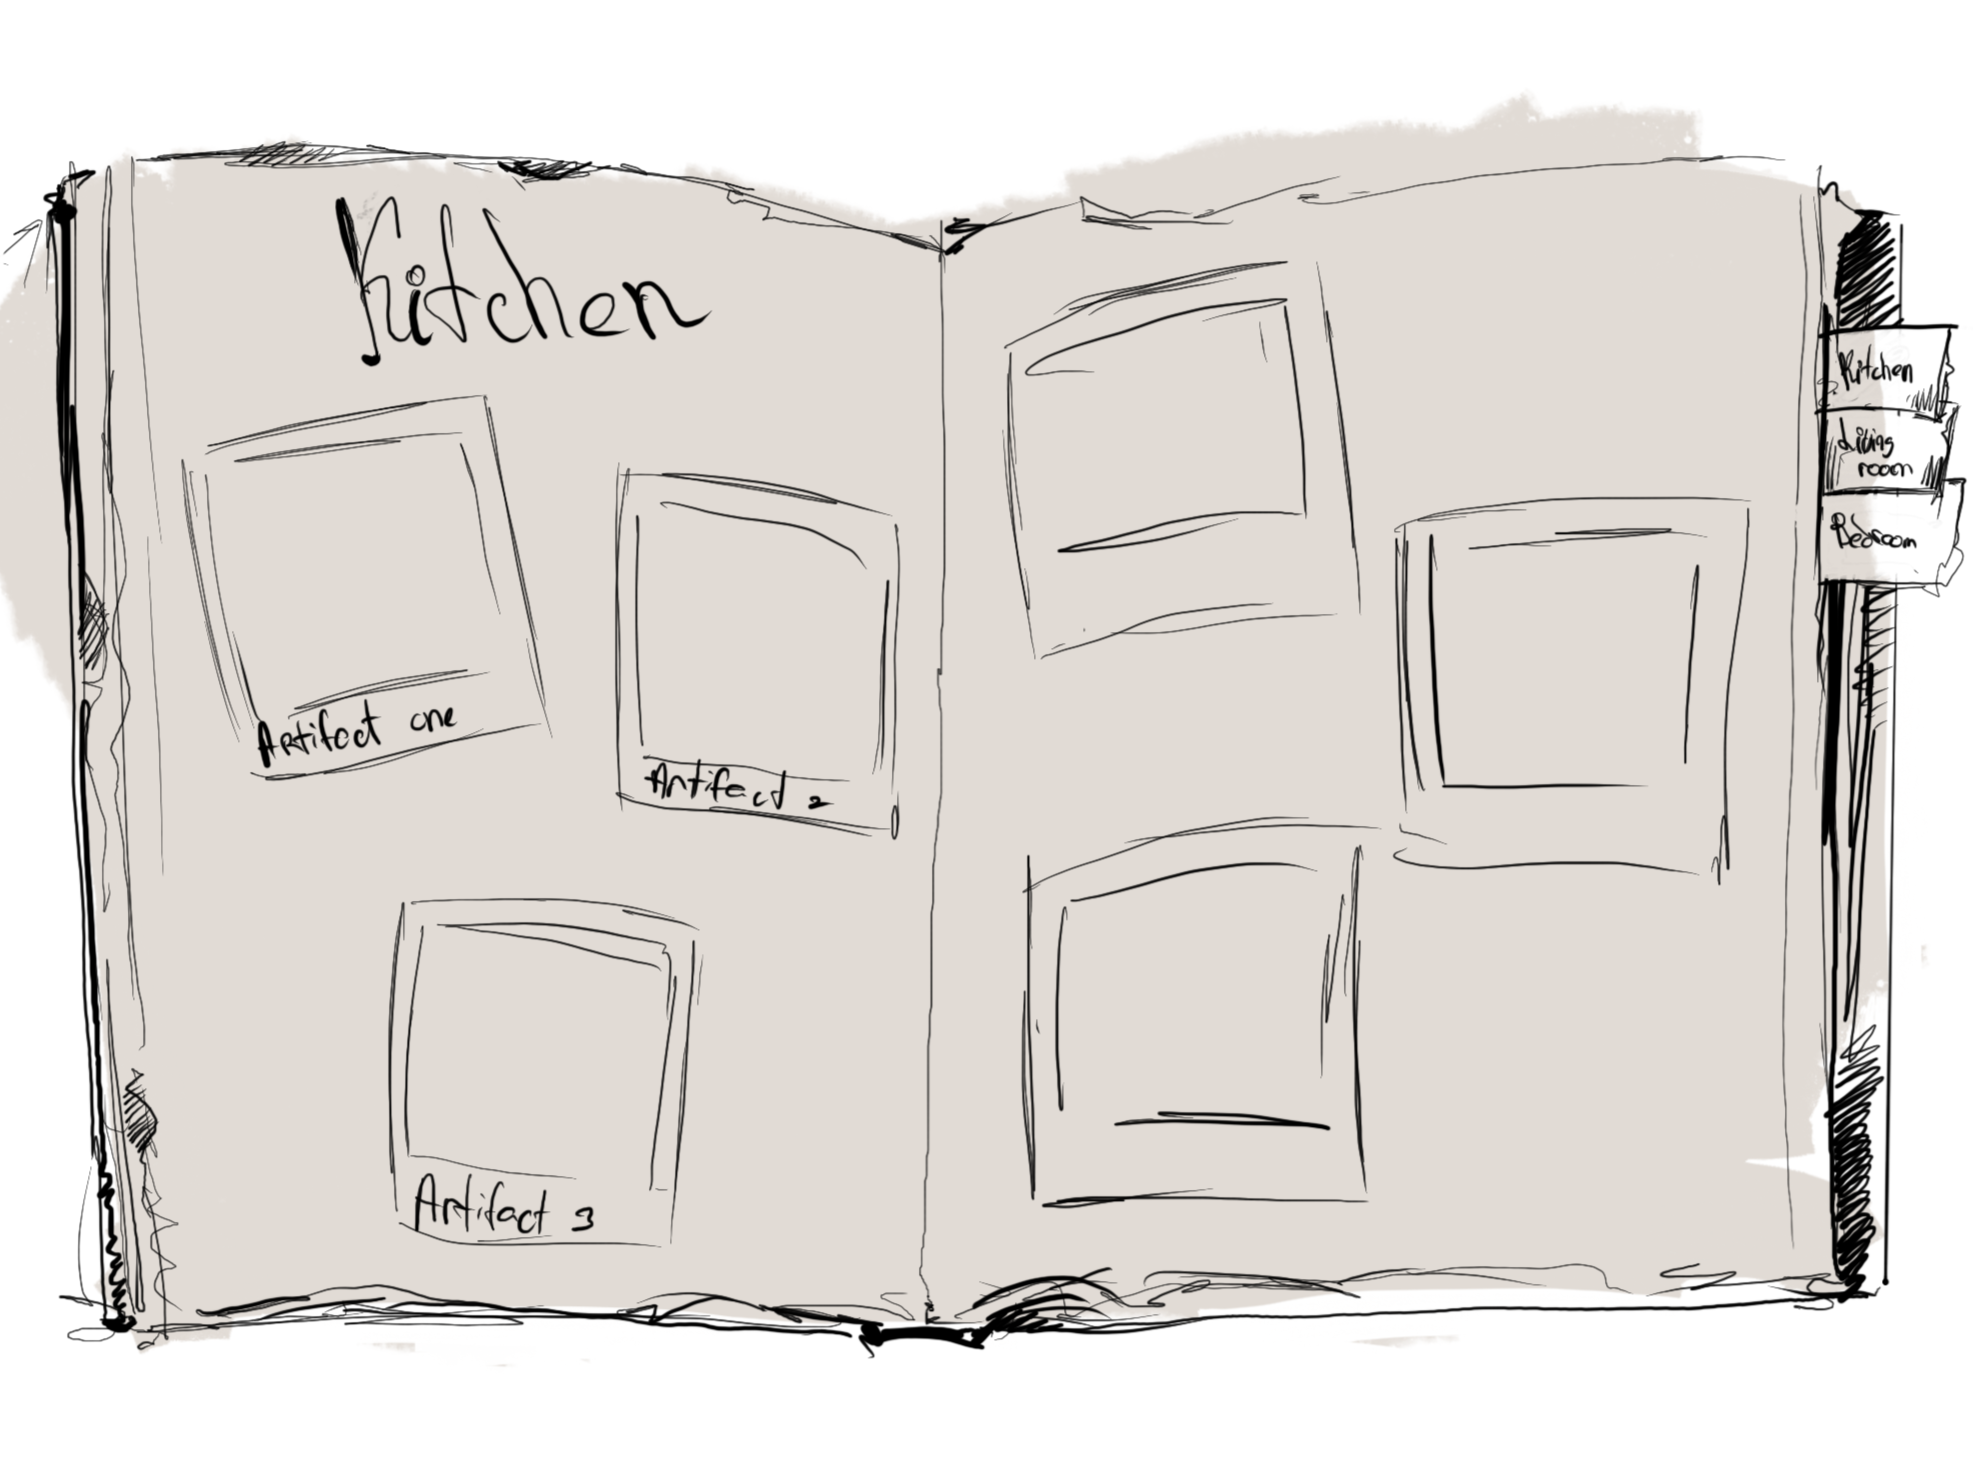 Kitchen
Artifact one
Artifact 2
Artifact 3
Kitchen
Living
room
Bedroom